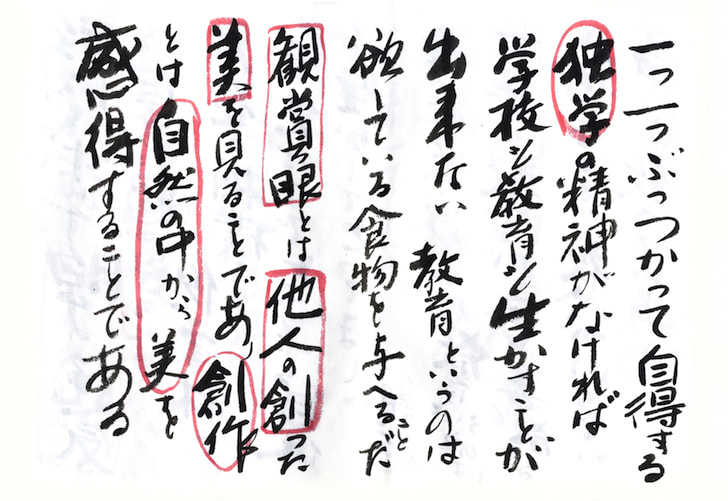 一つ一つぶっつかって自得する
独学の精神がなければ
学校も教育も生かすことが
出来ない 教育というのは
欲している食物を与へることだ
観賞眼とは他人の創った
美を見ることであり創作
とは自然の中から美を
感得することである